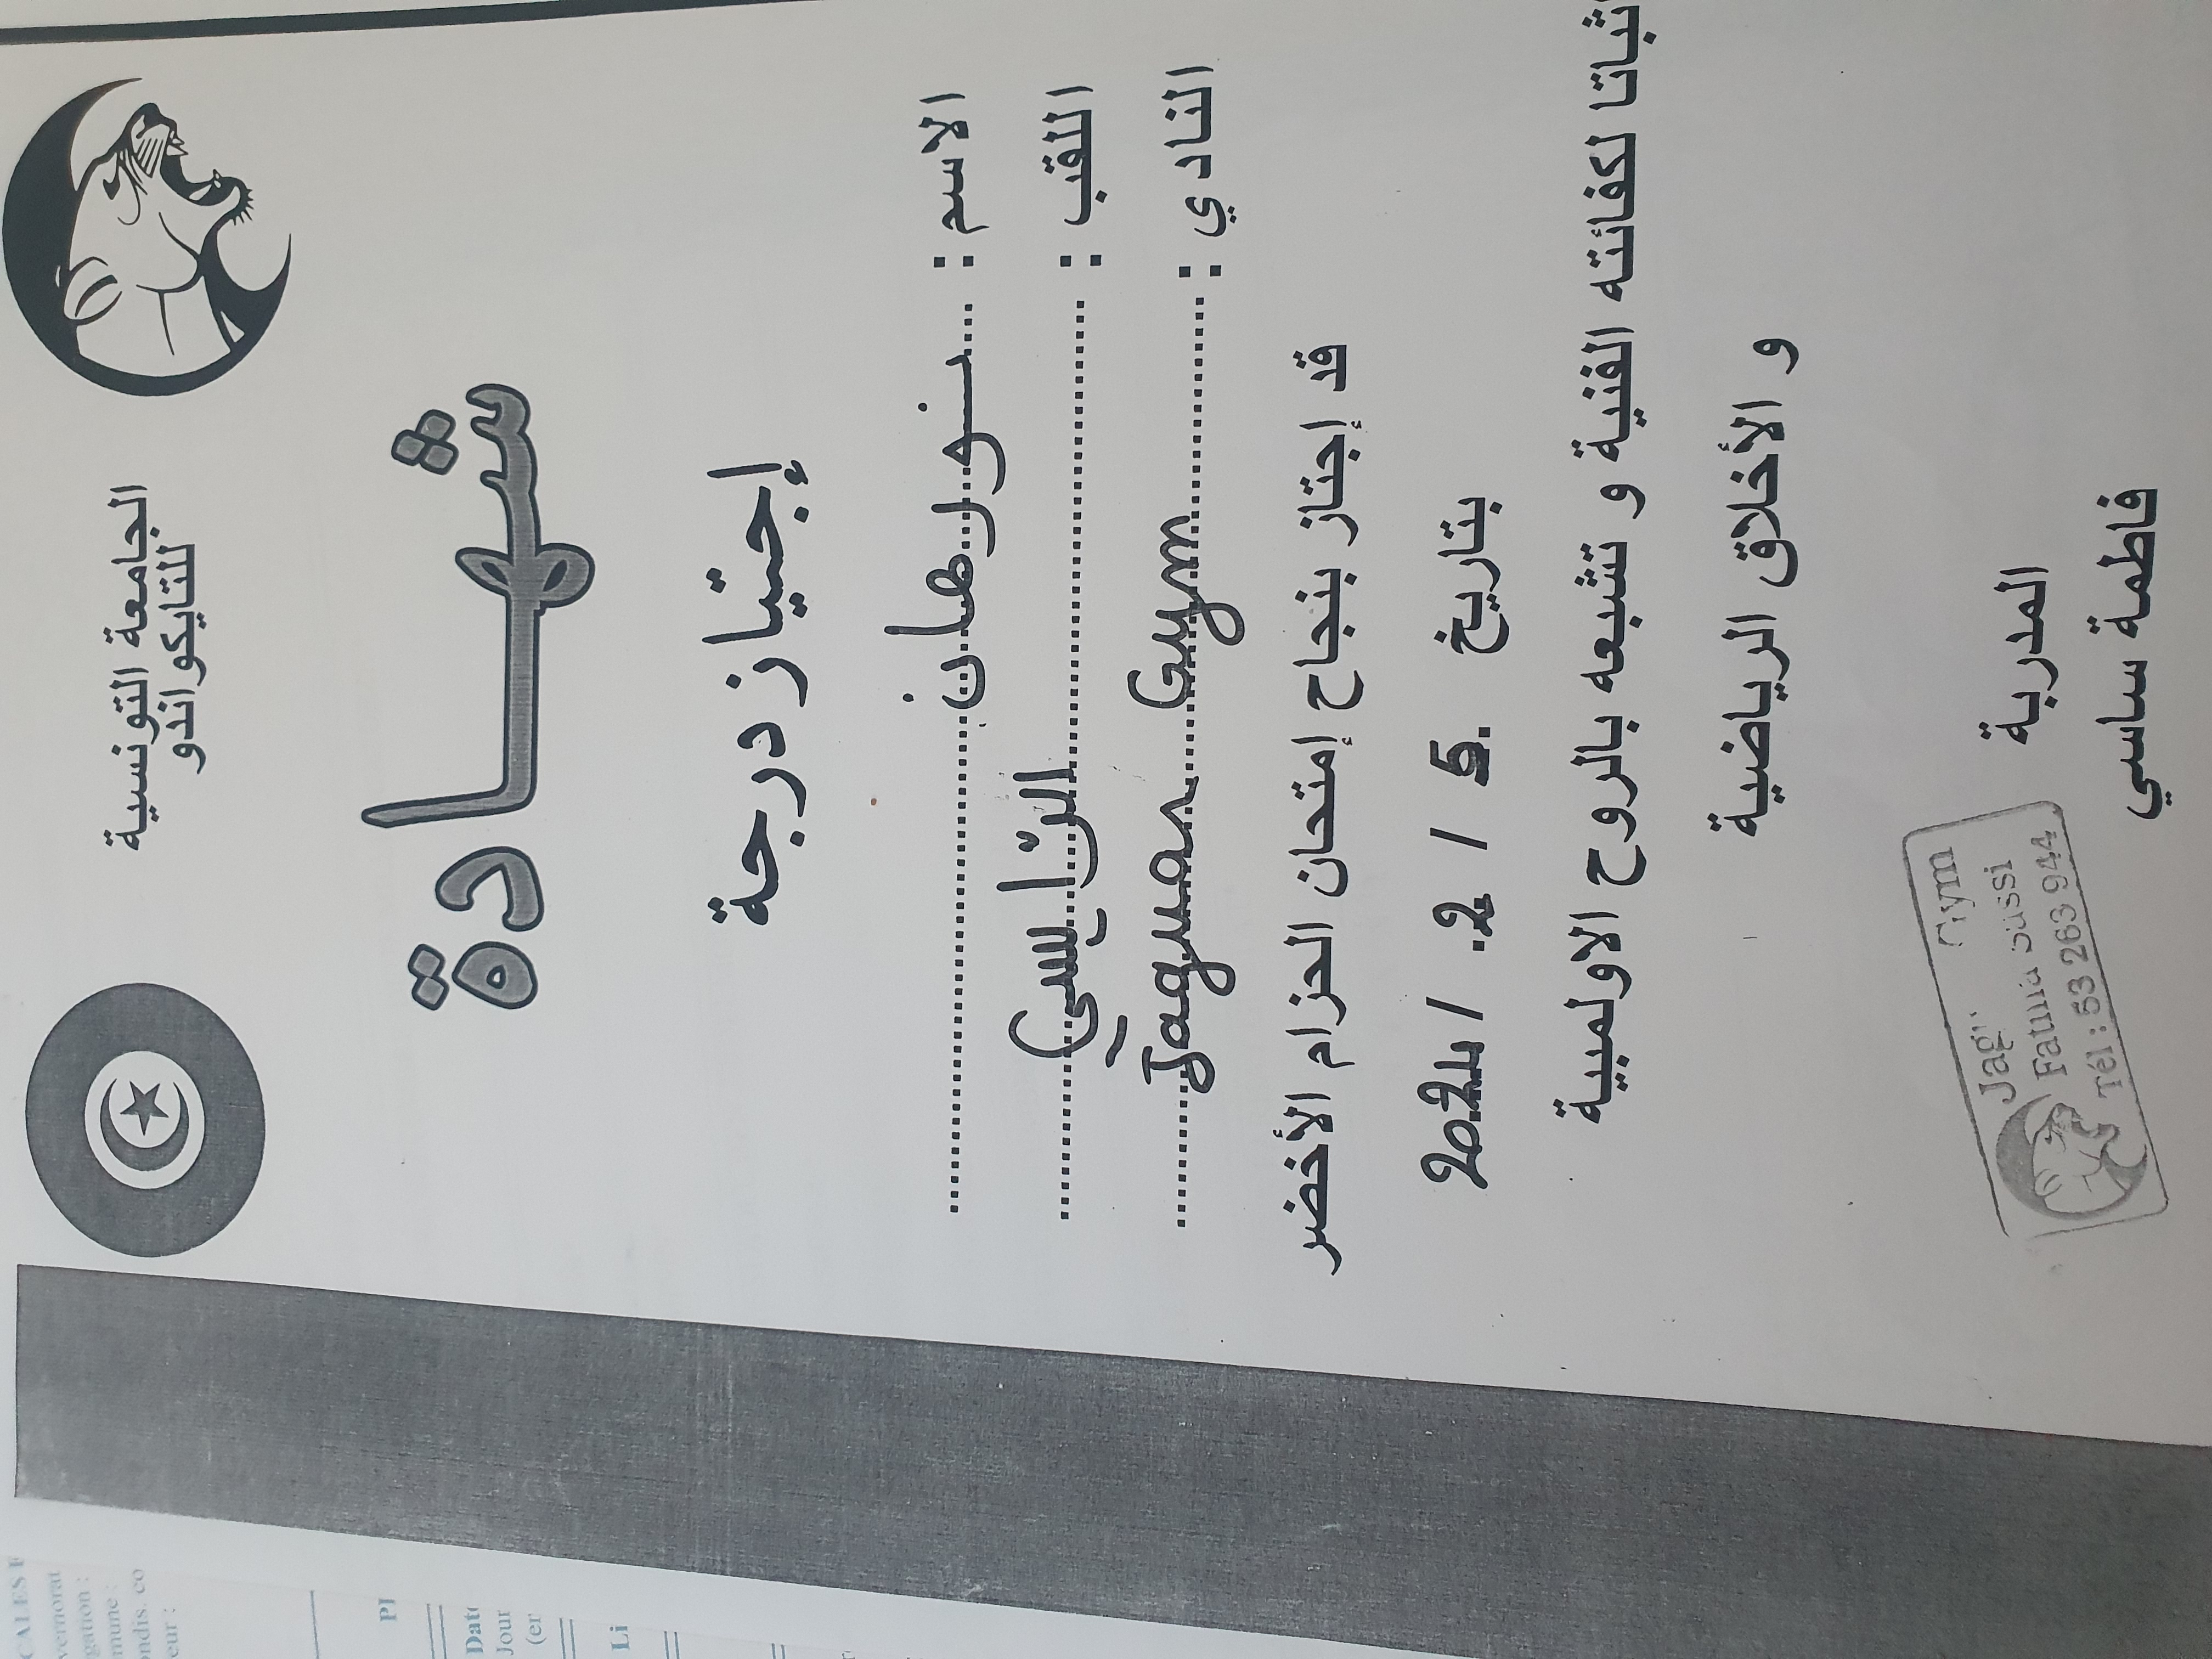 الجامعة التونسية
للتايكواندو
شهادة
إجتياز درجة
الاسم : نورهان
اللقب : الرّايسي
النادي : Jaguar Gym
قد إجتاز بنجاح إمتحان الحزام الأخضر
بتاريخ 5 / 2 / 2021
ثباتا لكفائته الفنية و تشبعه بالروح الاولمبية
و الأخلاق الرياضية
المدربة
فاطمة ساسي
Gym
Fatma Sassi
Tél : 53 263 944
CALES
mune :
eur :
Jour